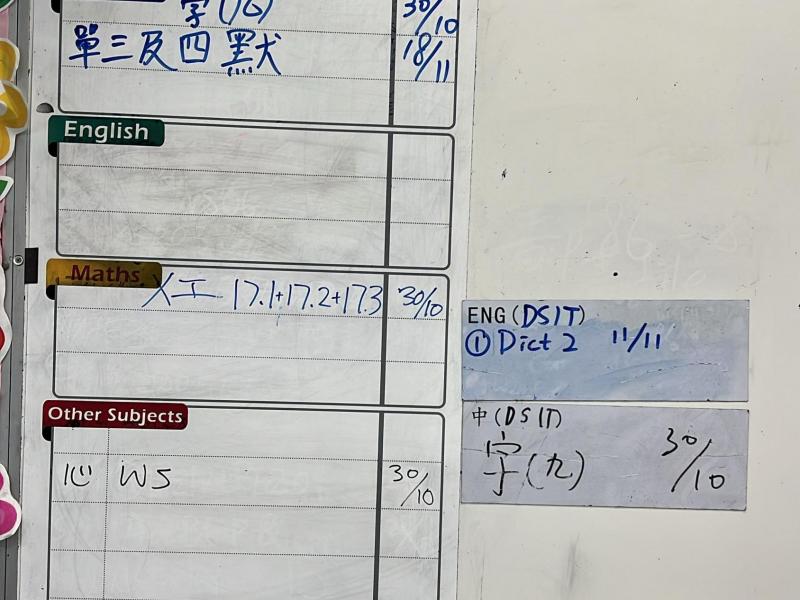 字(16) 30/10
單三及四 默 18/11
English
Maths
工 17.1+17.2+17.3 30/10
ENG(DSIT)
① Dict 2 11/11
Other Subjects
中(DSIT)
字(九) 30/10
心 WS 30/10